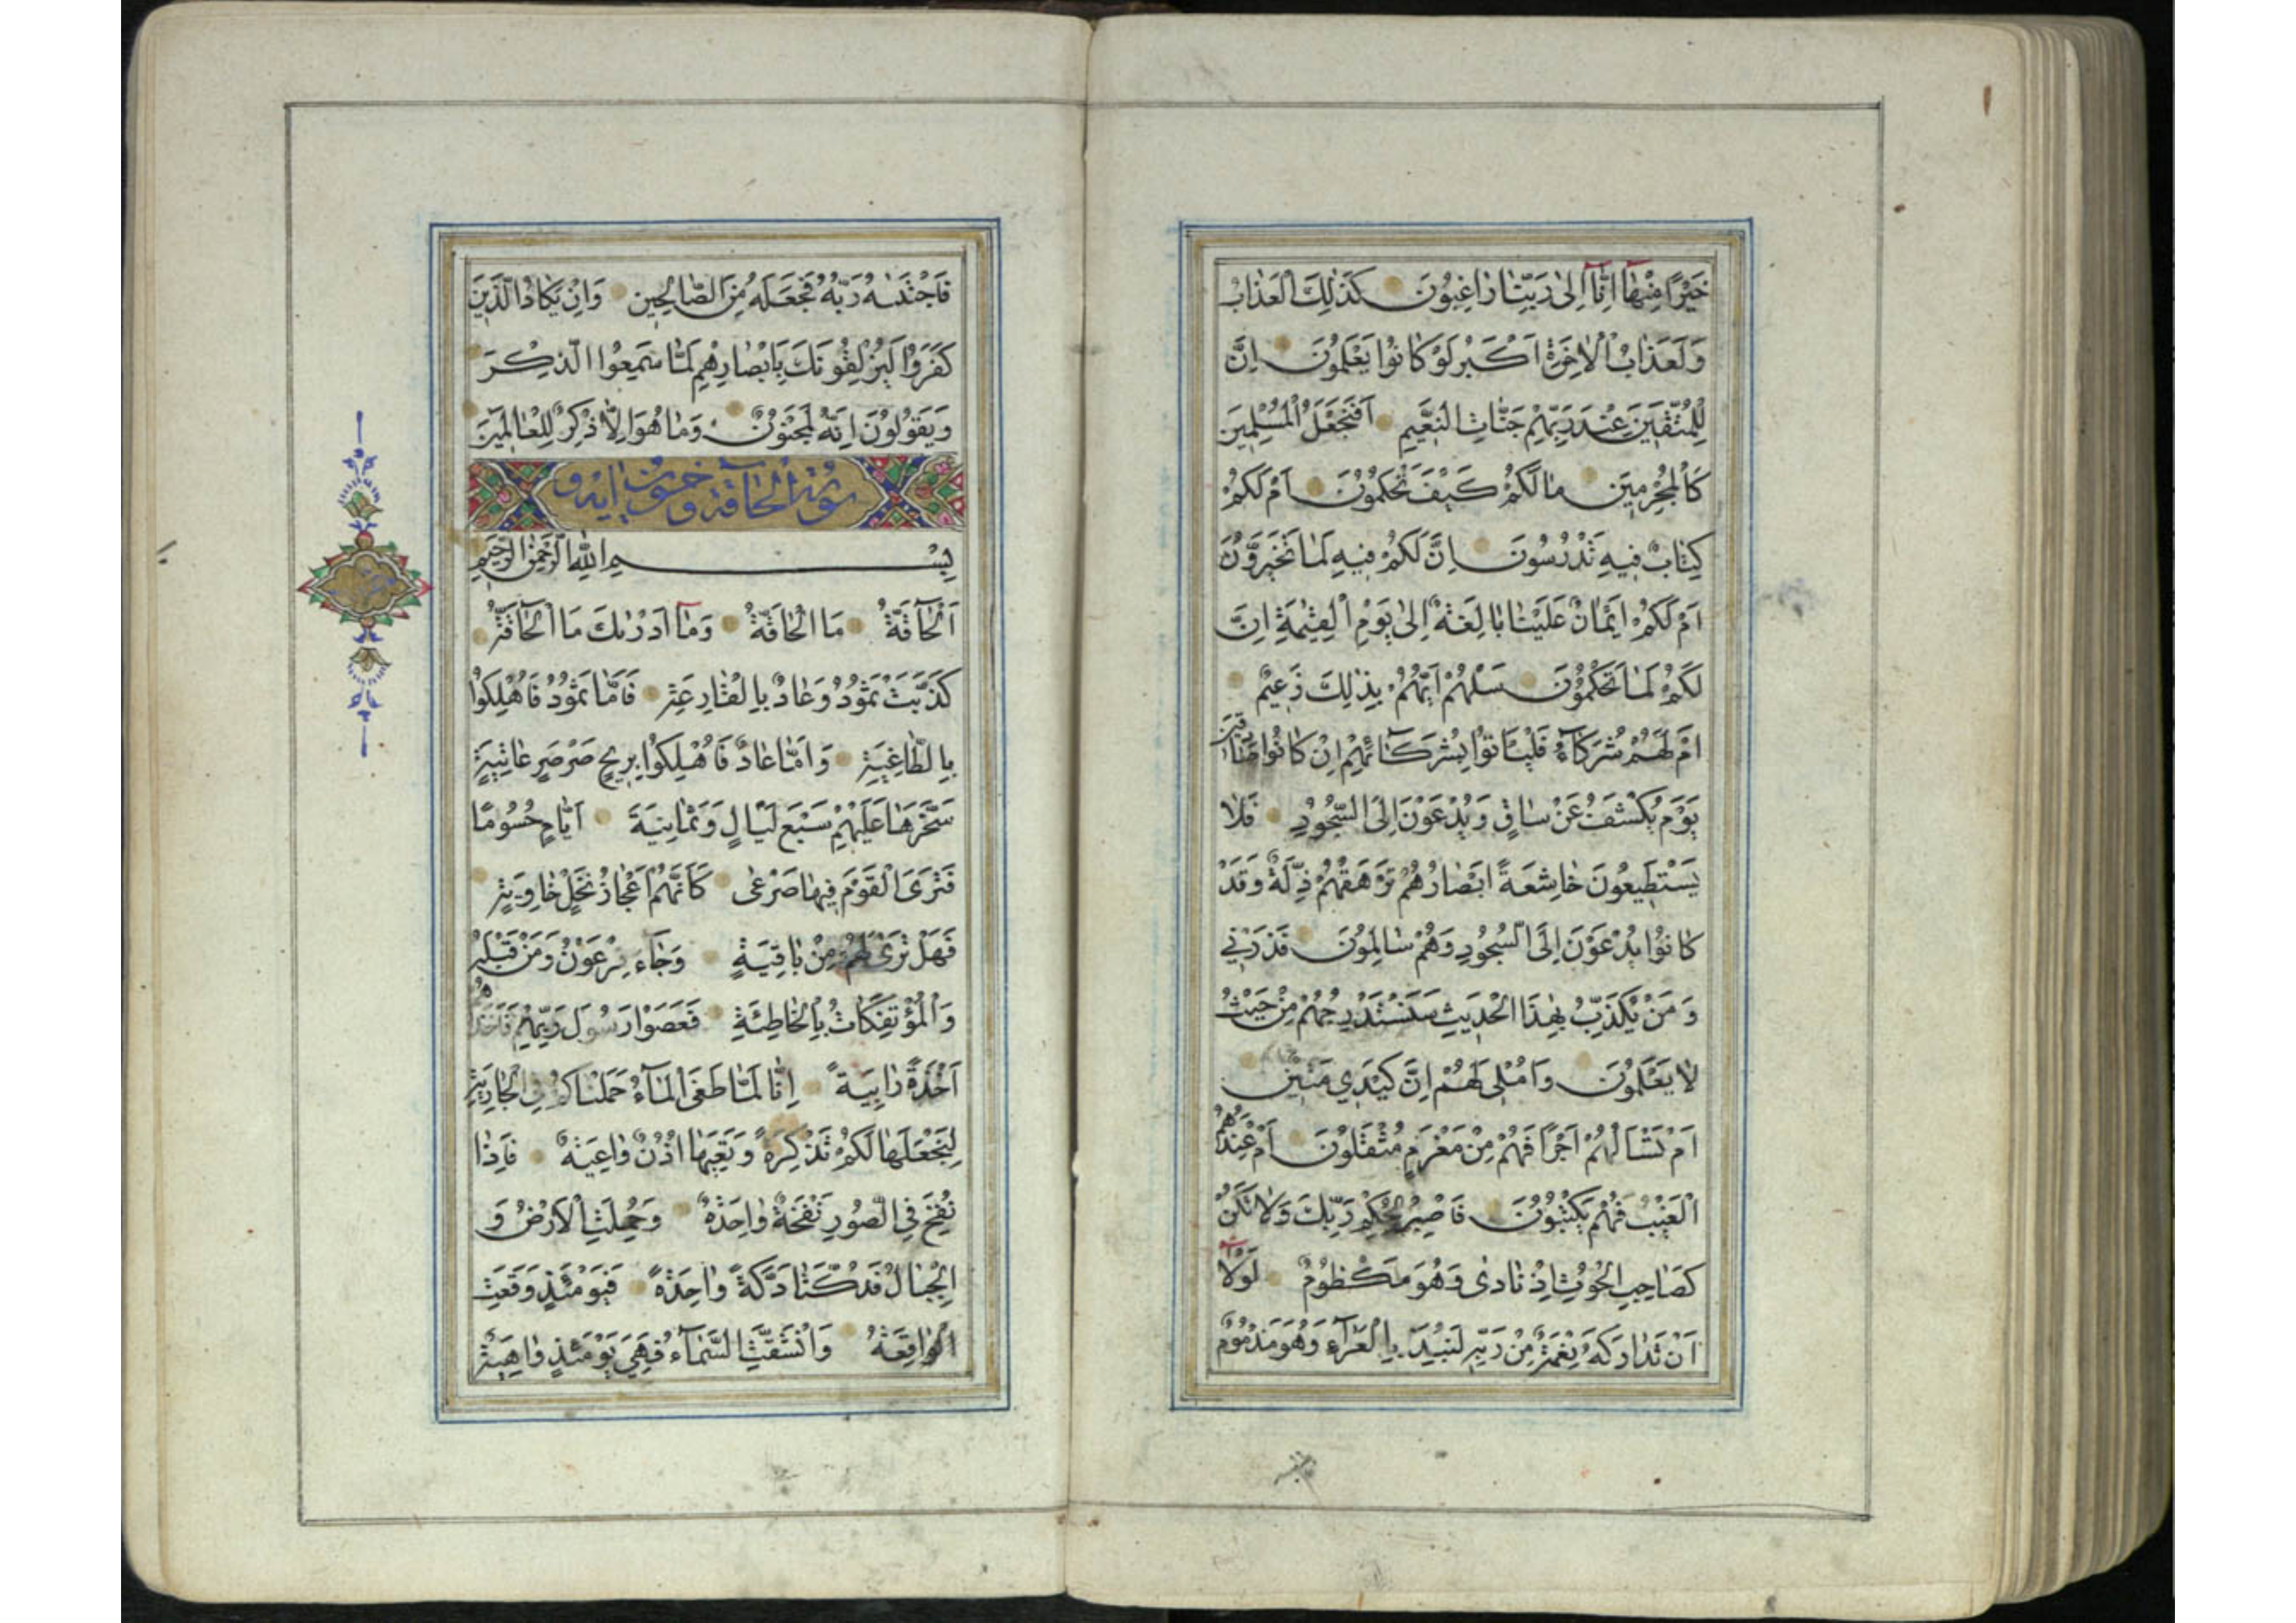 خَيْرًا مِنْهَا إِنَّا إِلَىٰ رَبِّنَا رَاغِبُونَ كَذَٰلِكَ الْعَذَابُ
وَلَعَذَابُ الْآخِرَةِ أَكْبَرُ لَوْ كَانُوا يَعْلَمُونَ إِنَّ
لِلْمُتَّقِينَ عِنْدَ رَبِّهِمْ جَنَّاتِ النَّعِيمِ أَفَنَجْعَلُ الْمُسْلِمِينَ
كَالْمُجْرِمِينَ مَا لَكُمْ كَيْفَ تَحْكُمُونَ أَمْ لَكُمْ
كِتَابٌ فِيهِ تَدْرُسُونَ إِنَّ لَكُمْ فِيهِ لَمَا تَخَيَّرُونَ
أَمْ لَكُمْ أَيْمَانٌ عَلَيْنَا بَالِغَةٌ إِلَىٰ يَوْمِ الْقِيٰمَةِ إِنَّ
لَكُمْ لَمَا تَحْكُمُونَ سَلْهُمْ أَيُّهُمْ بِذَٰلِكَ زَعِيمٌ
أَمْ لَهُمْ شُرَكَاءُ فَلْيَأْتُوا بِشُرَكَائِهِمْ إِنْ كَانُوا صَادِقِينَ
يَوْمَ يُكْشَفُ عَنْ سَاقٍ وَيُدْعَوْنَ إِلَى السُّجُودِ فَلَا
يَسْتَطِيعُونَ خَاشِعَةً أَبْصَارُهُمْ تَرْهَقُهُمْ ذِلَّةٌ وَقَدْ
كَانُوا يُدْعَوْنَ إِلَى السُّجُودِ وَهُمْ سَالِمُونَ فَذَرْنِي
وَمَنْ يُكَذِّبُ بِهَٰذَا الْحَدِيثِ سَنَسْتَدْرِجُهُمْ مِنْ حَيْثُ
لَا يَعْلَمُونَ وَأُمْلِي لَهُمْ إِنَّ كَيْدِي مَتِينٌ
أَمْ تَسْأَلُهُمْ أَجْرًا فَهُمْ مِنْ مَغْرَمٍ مُثْقَلُونَ أَمْ عِنْدَهُمُ
الْغَيْبُ فَهُمْ يَكْتُبُونَ فَاصْبِرْ لِحُكْمِ رَبِّكَ وَلَا تَكُنْ
كَصَاحِبِ الْحُوتِ إِذْ نَادَىٰ وَهُوَ مَكْظُومٌ لَوْلَا
أَنْ تَدَارَكَهُ نِعْمَةٌ مِنْ رَبِّهِ لَنُبِذَ بِالْعَرَاءِ وَهُوَ مَذْمُومٌ
فَاجْتَبٰهُ رَبُّهُ فَجَعَلَهُ مِنَ الصَّالِحِينَ وَإِنْ يَكَادُ الَّذِينَ
كَفَرُوا لَيُزْلِقُونَكَ بِأَبْصَارِهِمْ لَمَّا سَمِعُوا الذِّكْرَ
وَيَقُولُونَ إِنَّهُ لَمَجْنُونٌ وَمَا هُوَ إِلَّا ذِكْرٌ لِلْعَالَمِينَ
سورة الحاقة وخمسون ايه
بِسْمِ اللَّهِ الرَّحْمَٰنِ الرَّحِيمِ
اَلْحَاقَّةُ مَا الْحَاقَّةُ وَمَا أَدْرٰىكَ مَا الْحَاقَّةُ
كَذَّبَتْ ثَمُودُ وَعَادٌ بِالْقَارِعَةِ فَأَمَّا ثَمُودُ فَأُهْلِكُوا
بِالطَّاغِيَةِ وَأَمَّا عَادٌ فَأُهْلِكُوا بِرِيحٍ صَرْصَرٍ عَاتِيَةٍ
سَخَّرَهَا عَلَيْهِمْ سَبْعَ لَيَالٍ وَثَمَانِيَةَ أَيَّامٍ حُسُومًا
فَتَرَى الْقَوْمَ فِيهَا صَرْعَىٰ كَأَنَّهُمْ أَعْجَازُ نَخْلٍ خَاوِيَةٍ
فَهَلْ تَرَىٰ لَهُمْ مِنْ بَاقِيَةٍ وَجَاءَ فِرْعَوْنُ وَمَنْ قَبْلَهُ
وَالْمُؤْتَفِكَاتُ بِالْخَاطِئَةِ فَعَصَوْا رَسُولَ رَبِّهِمْ فَأَخَذَهُمْ
أَخْذَةً رَابِيَةً إِنَّا لَمَّا طَغَى الْمَاءُ حَمَلْنَاكُمْ فِي الْجَارِيَةِ
لِنَجْعَلَهَا لَكُمْ تَذْكِرَةً وَتَعِيَهَا أُذُنٌ وَاعِيَةٌ فَإِذَا
نُفِخَ فِي الصُّورِ نَفْخَةٌ وَاحِدَةٌ وَحُمِلَتِ الْأَرْضُ وَ
الْجِبَالُ فَدُكَّتَا دَكَّةً وَاحِدَةً فَيَوْمَئِذٍ وَقَعَتِ
الْوَاقِعَةُ وَانْشَقَّتِ السَّمَاءُ فَهِيَ يَوْمَئِذٍ وَاهِيَةٌ